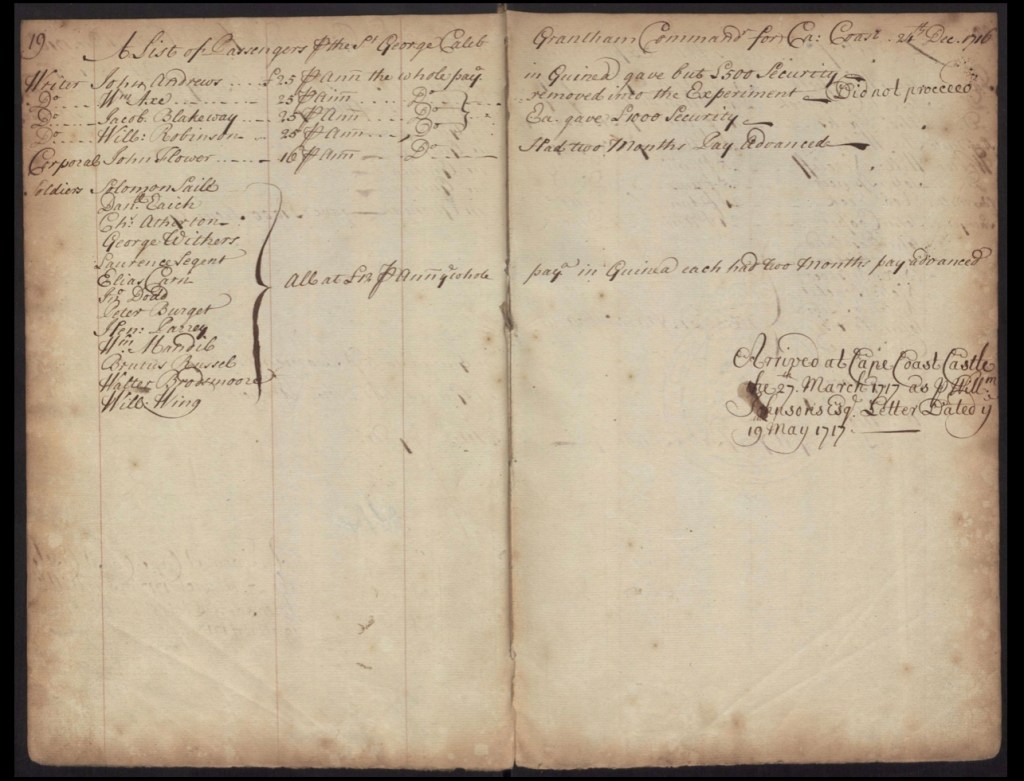 19
A List of Passengers ⅌ the St George Caleb Grantham Command.r for Ca: Coast 24th Dec. 1716
Writer John Andrews £25 ⅌ Ann the whole pay.e in Guinea gave but £500 Security
Do Wm Axe 25 ⅌ Ann Do removed into the Experiment Did not proceed
Do Jacob Blakeway 25 ⅌ Ann Do Ea. gave £1000 Security
Do Will: Robinson 25 ⅌ Ann Do
Corporal John Flower 16 ⅌ Ann Do Had two Months Pay Advanced
Soldiers Solomon Saill
Danl. Eaich
Chr. Atherton
George Withers
Laurence Segent
Elias Carn
Jno Dodd
Peter Burget
Hen: Parrey
Wm Mandib
Brutus Bussel
Walter Brodsmoore
Will: Wing
All at £12 ⅌ Ann ye whole pay.e in Guinea each had two Months pay advanced
Arrived at Cape Coast Castle
the 27th March 1717 as ⅌ Willm
Johnsons Esqr. Letter Dated ye
19 May 1717